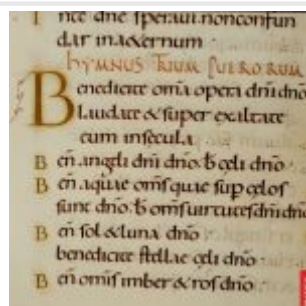 nce dne speraui. non confun
dar in aeternum·
hymnus trium puerorum
Benedicite omia opera dni dno
laudate & super exaltate
eum in secula·
Ben angli dni dno· b celi dno·
Ben aquae oms quae sup celos
sunt dno· b oms uirtutes dni dno
Ben sol & luna dno
benedicite stellae celi dno·
Ben omis imber & ros dno·